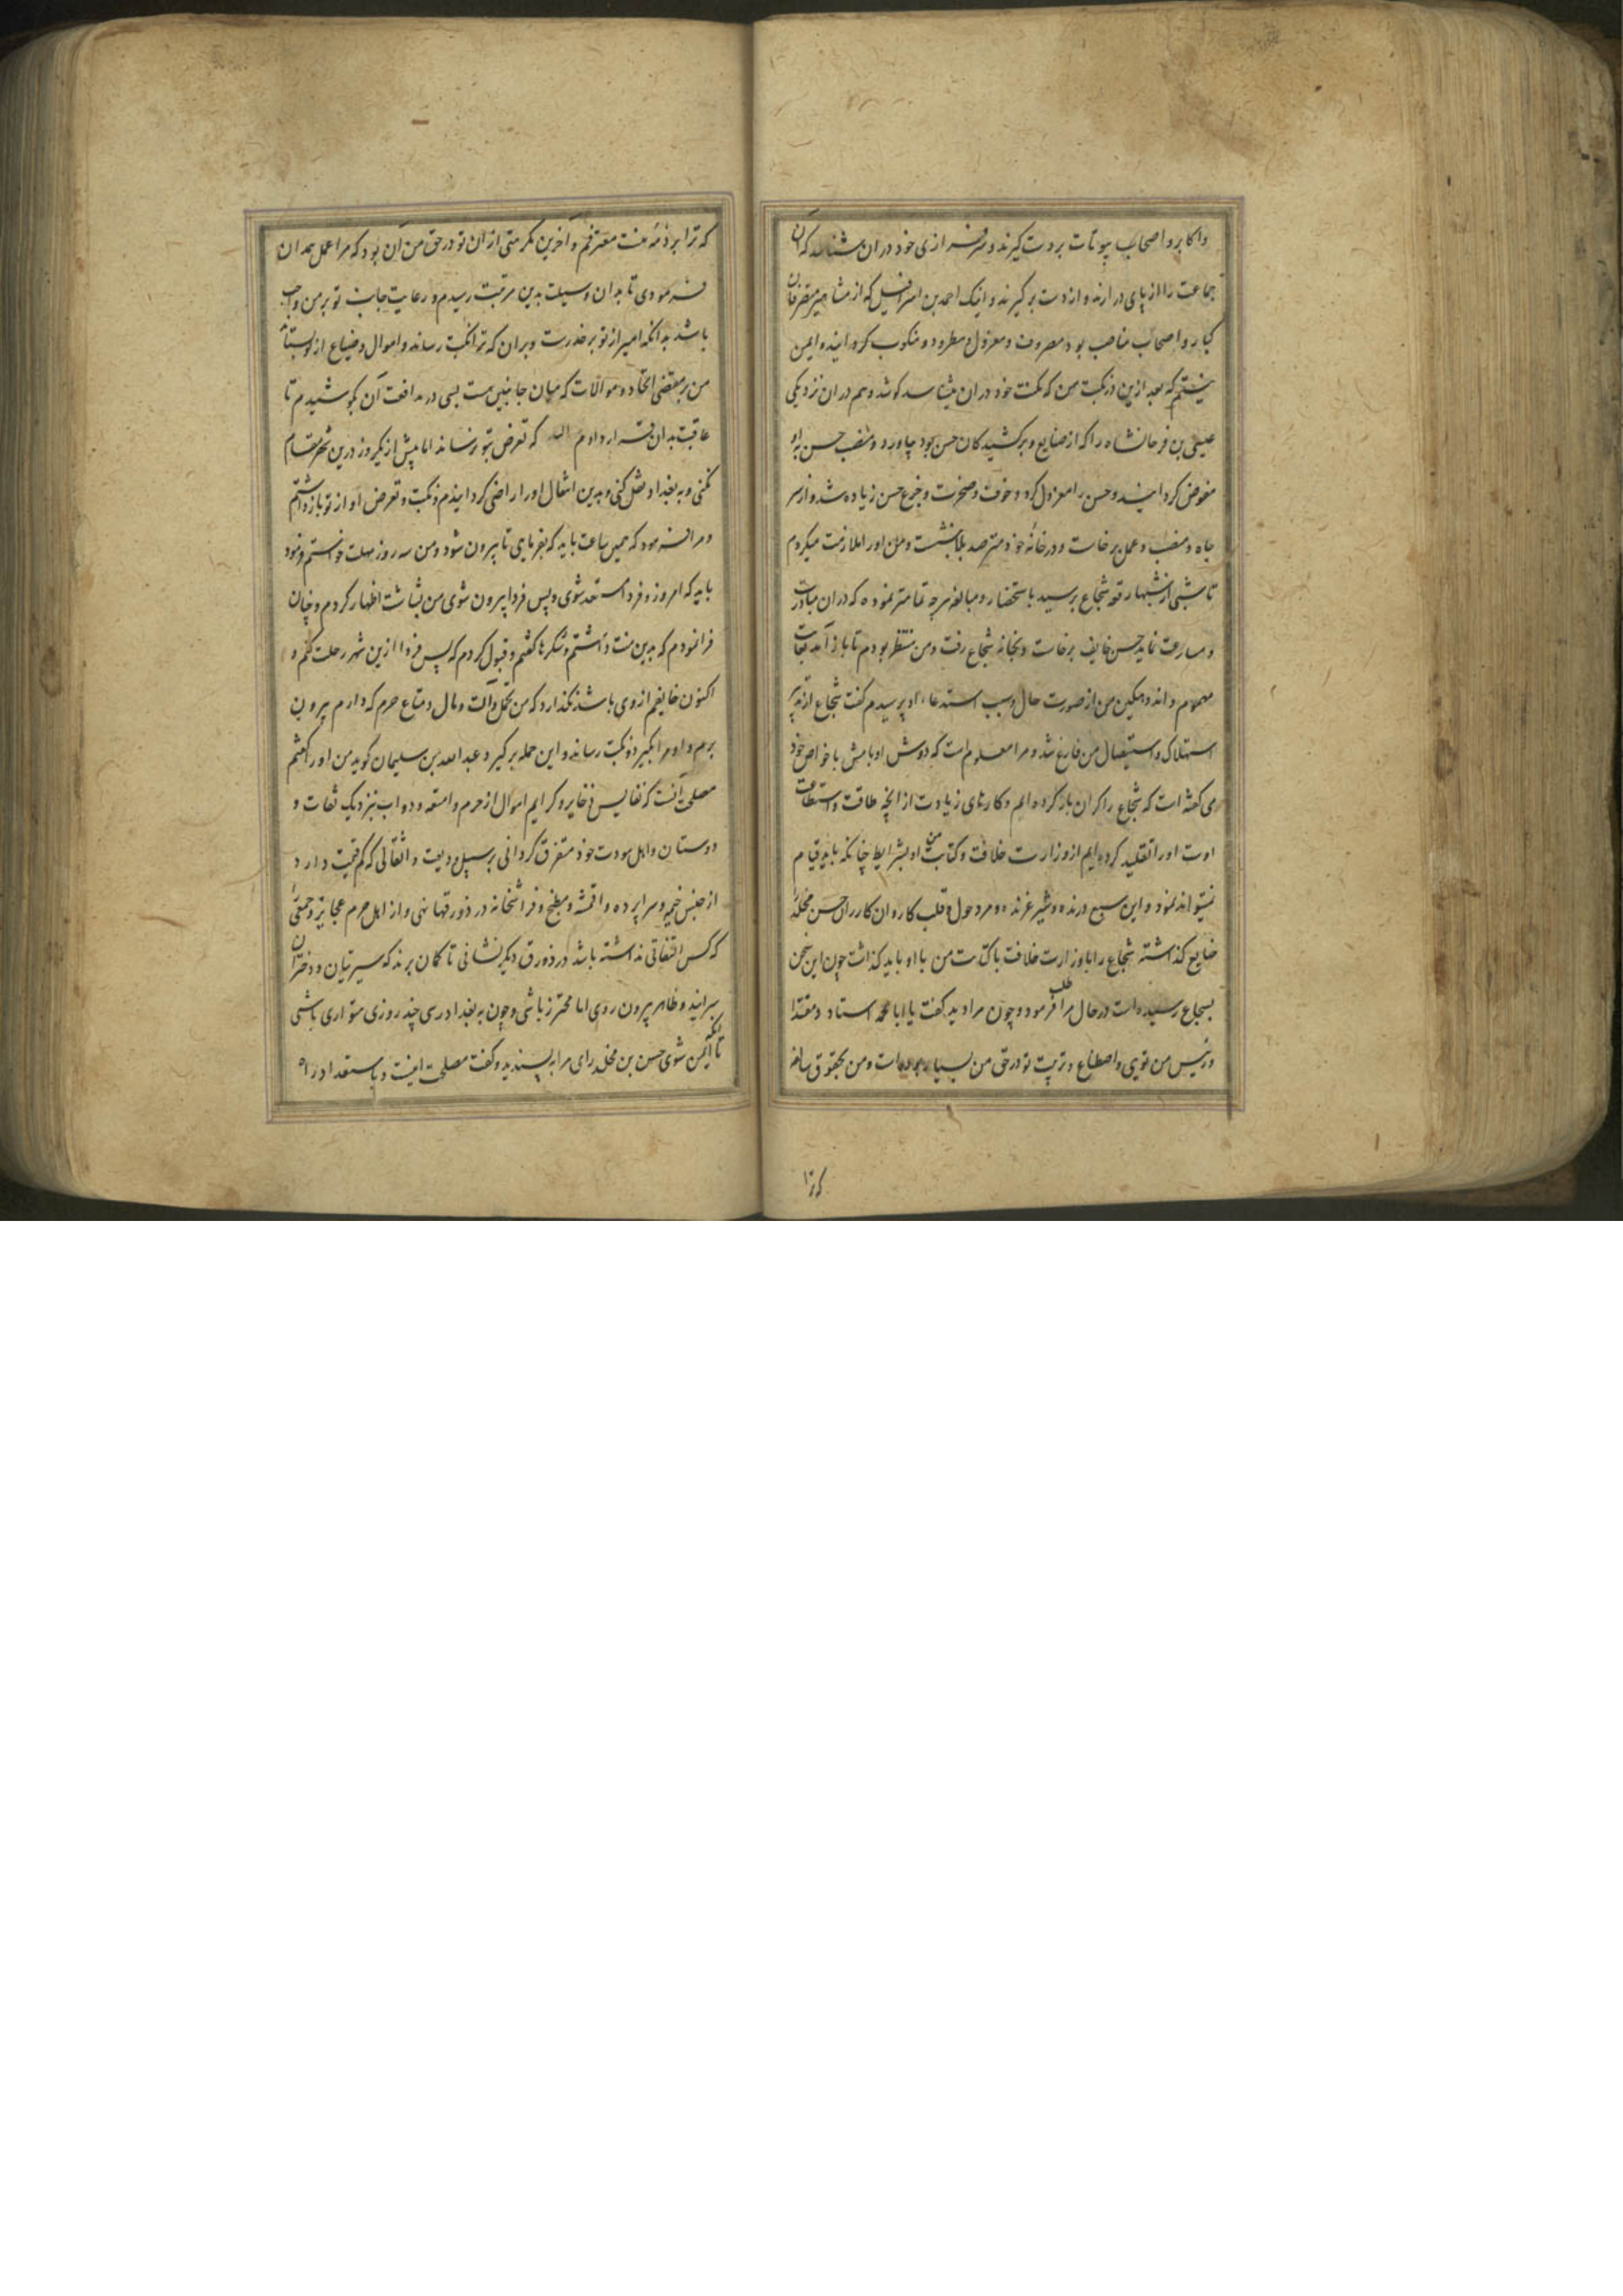 واکابر و اصحاب بیوتات بر دست گیرند و سرفرازی خود در ان شناسد که ان
جماعت را از پای درارند و از دست برگیرند و اینک احمد بن اسرافیل که از مشاهیر متصرفان
کبار و اصحاب مناصب بود مصروف و معزول و مطرود و منکوب کردانید و ایمن
نیستم که بعد ازین در نکبت من که مکنت خود در ان میشناسد کوشد و هم در ان نزدیکی
عیسی بن فرخانشاه را که از صنایع و برکشیدکان حسن بود بیاورد و منصب حسن به او
مفوض کردانید و حسن را معزول کرد و خوف و ضجرت و جزع حسن زیاده شد و از سر
جاه و منصب و عمل برخاست و در خانه خود مترصد بلا بنشست و من او را ملازمت میکردم
تا شبی از شبها رقعه شجاع برسید باستحضار و مبالغه هرچه تمامتر نموده که در ان مبادرت
و مسارعت نماید حسن خایف برخاست و بخانه شجاع رفت و من منتظر بودم تا باز آمد بغایت
مهموم و اندوهکین من از صورت حال و سبب استدعاء او پرسیدم گفت شجاع از تدبیر
استهلاک و استیصال من فارغ شد و مرا معلوم است که دوش اوتامش با خواص خود
می گفته است که شجاع را کران بار کرده ایم و کارهای زیادت از انچه طاقت و استطاعت
اوست او را تقلید کرده ایم از وزارت خلافت و کتابت من او بشرایط چنانکه باید قیام
نتیواند نمود و این سبع درنده و شیر غرنده و مرد حول و قلب کاردان کارران حسن مخلد
ضایع گذاشته شجاع را با وزارت خلافت باکتابت من با او باید کذاشت چون این سخن
بسجاع رسیده است در حال مرا طلب فرمود و چون مرا دید گفت یا ابا محمد استاد و مقتدا
و رئیس من تویی و اصطناع و تربیت تو در حق من بسیار بوده است و من بحقوق سالفه
که ترا
که ترا بر ذمه منست معترفم و آخرین مکرمتی از ان تو در حق من آن بود که مرا عمل همدان
فرمودی تا بدان وسیلت بدین مرتبت رسیدم و رعایت جانب تو بر من واجب
باشد بدانکه امیر از تو بر حذرست و بران که ترا نکبت رساند و اموال و ضیاع از تو بستاند
من بر مقتضی اتحاد و موالات که میان جانبین هست بسی در مدافعت آن کوشیدم تا
عاقبت بدان قرار دادم که تعرض بتو نرساند اما بیش از یکروز درین شهر مقام
نکنی و به بغداد نقل کنی و بدین انتقال او را راضی کردانیدم و نکبت و تعرض او از تو بازداشتم
و مرا فرمود که همین ساعت باید که بفرمایی تا بیرون شود و من سه روز مهلت خواستم فرمود
باید که امروز و فردا مستعد شوی و پس فردا بیرون شوی من بشاشت اظهار کردم و چنان
فرانمودم که بدین منت داشتم و شکرها کفتم و قبول کردم که پس فردا ازین شهر رحلت کنم و
اکنون خایفم از وی باشد نگذارد که من تجمل و آلت و مال و متاع حرم که دارم بیرون
برم و او مرا بگیرد و نکبت رساند و این جمله برگیرد عبد الله بن سلیمان کوید من او را کفتم
مصلحت آنست که نفایس ذخایر و کرایم اموال از حرم و امتعه و دواب بنزدیک ثقات و
دوستان و اهل مودت خود متفرق گردانی بر سبیل ودیعت و اثقالی که کم قیمت دارد
از جنس خیمه و سراپرده و اقمشه و مطبخ و فراشخانه در زورقها نهی و از اهل حرم عجایز و جمعی را
که کس التفاتی نداشته باشد در زورق دیگر نشانی تا کمان برند که سریتان و دختران
سرایند و ظاهر بیرون روی اما محترز باشی و چون به بغداد رسی چند روزی متواری باشی
تا آنکه ایمن شوی حسن بن مخلد رای مرا بپسندید و گفت مصلحت اینست و باستعداد راه